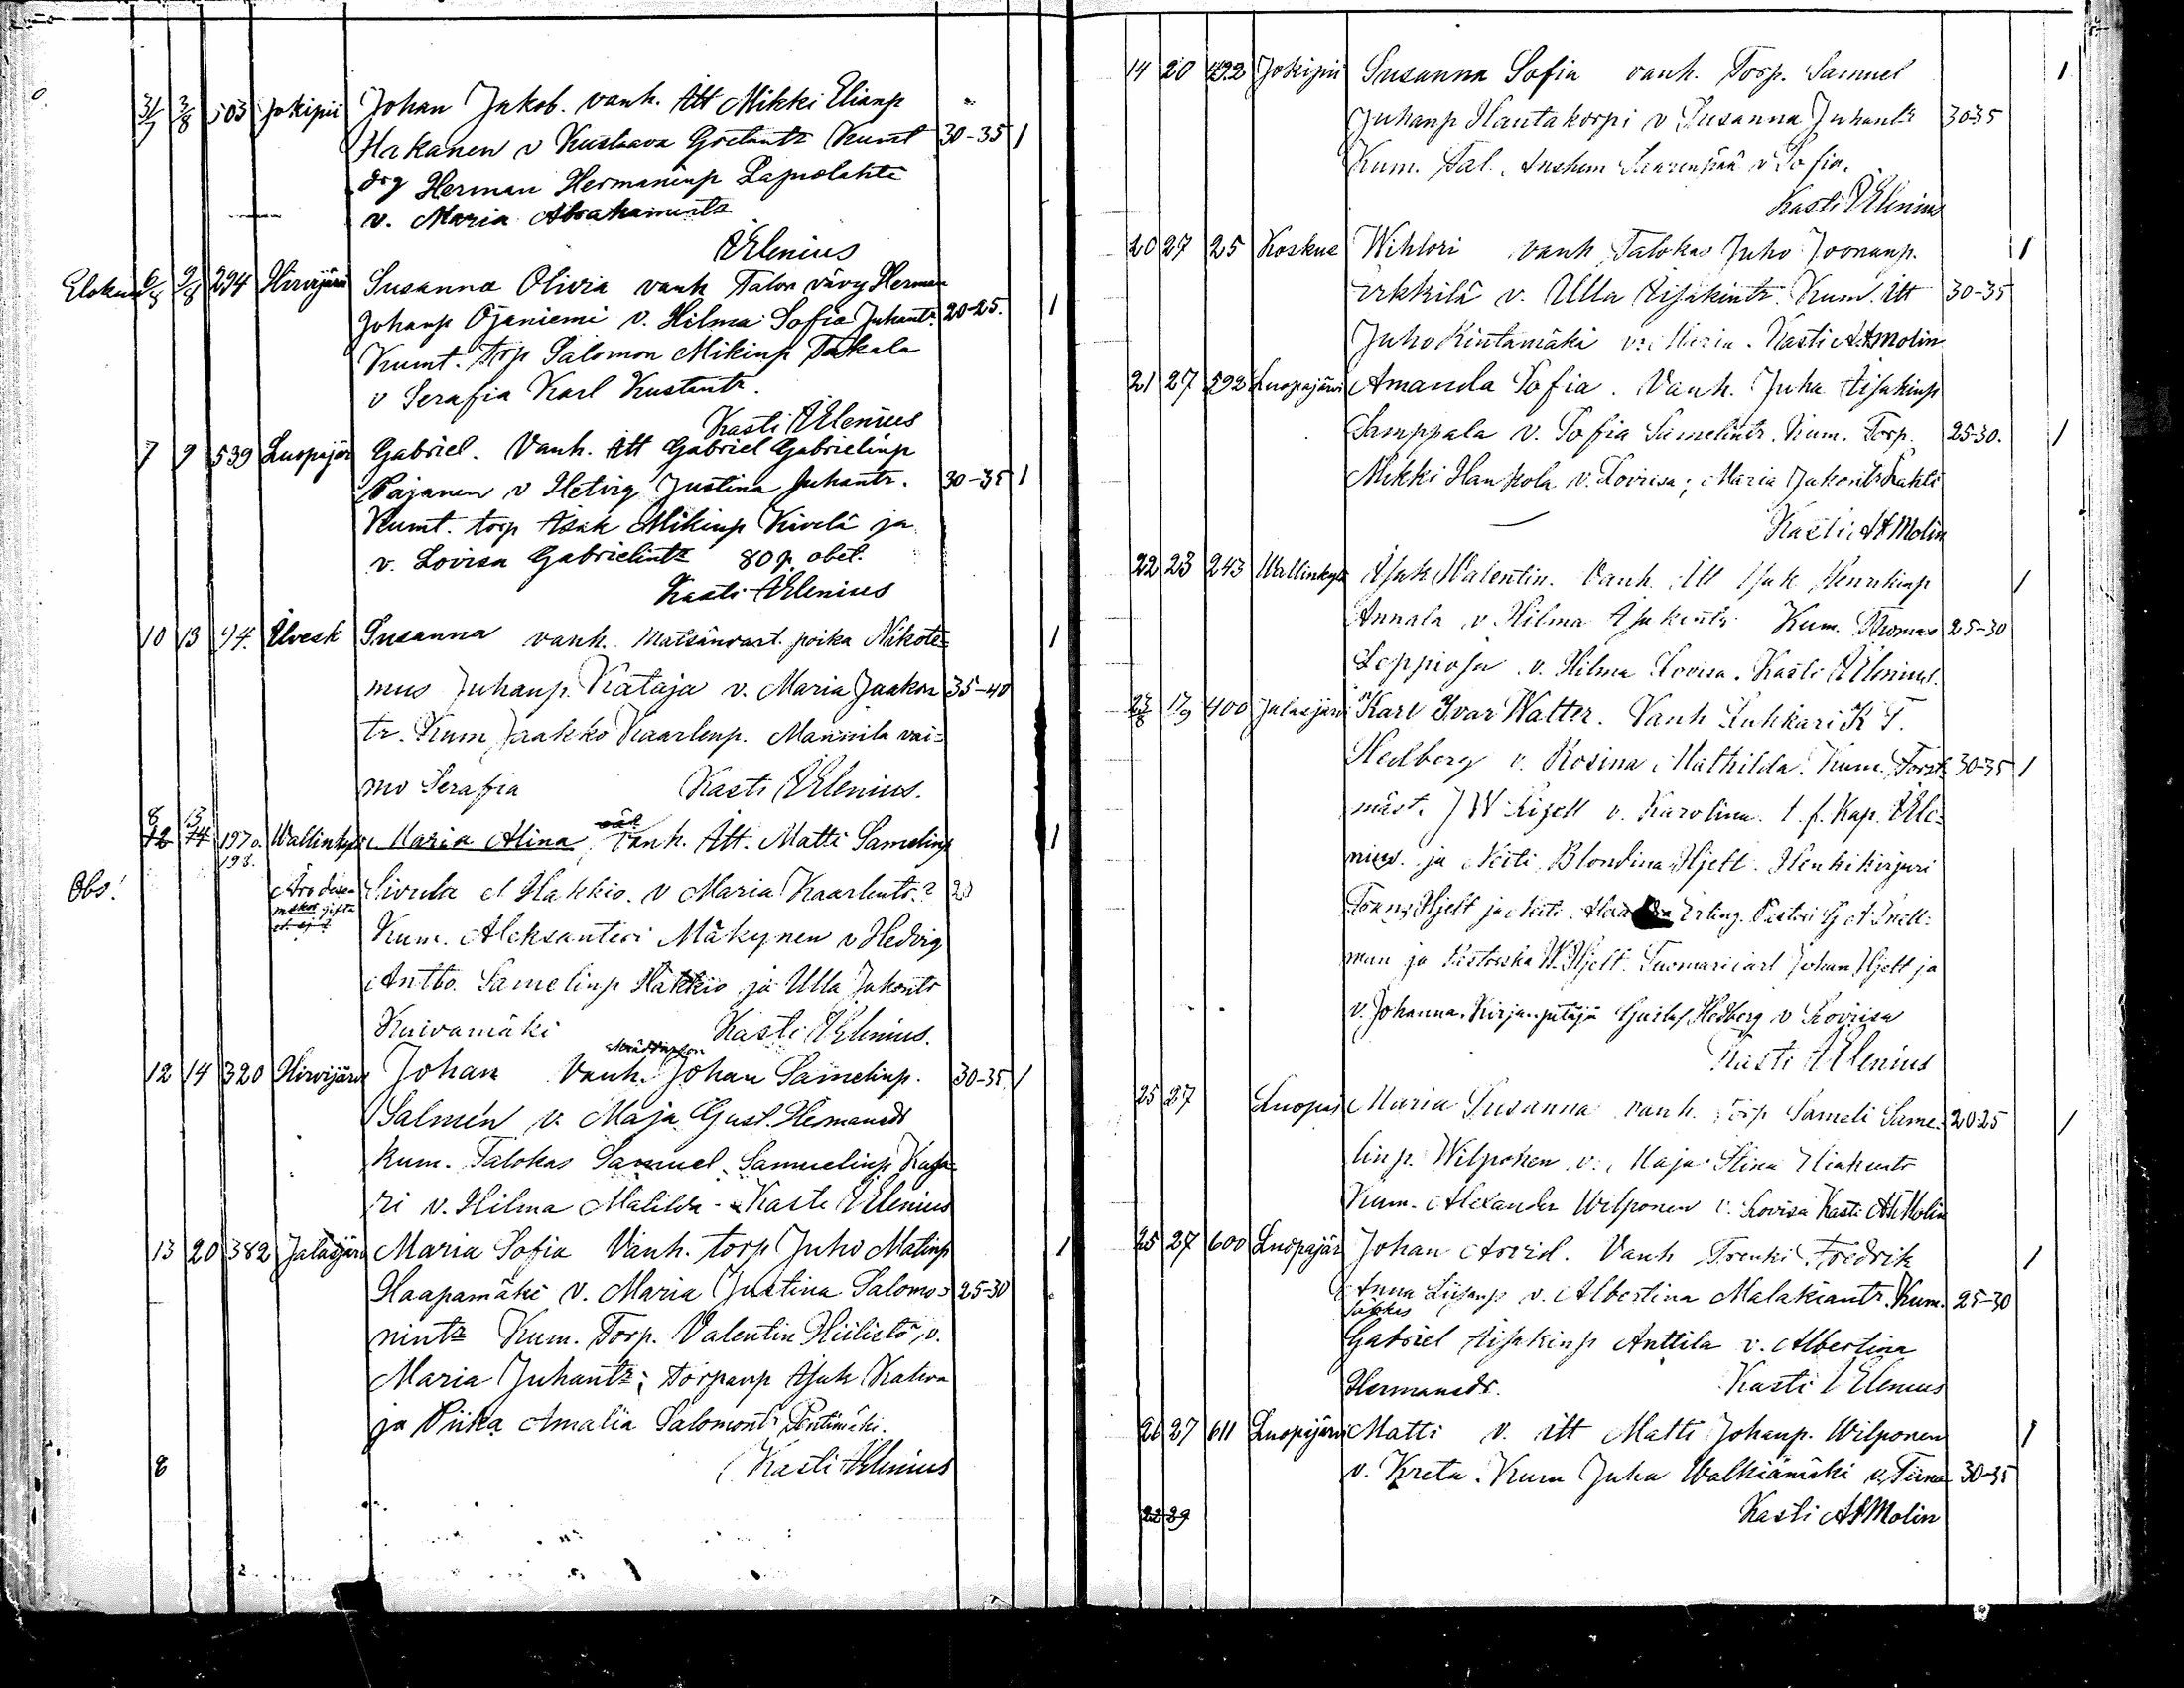 31/7 3/8 503 Jokipii Johan Jakob. vanh. Itt Mikki Elianp
Hakanen v Kustaava Kumt 30-35 1
drg Herman Hermaninp Lapuolahti
v. Maria Abrahamintr
Elenius
Elokuu 6/8 9/8 294 Hirvijärvi Susanna Olivia vanh Talon vävy Herman
Johanp Ojaniemi v. Hilma Sofia Juhantr. 20-25. 1
Kumt. torp Salomon Mikinp Taskala
v Serafia Karl Kustantr.
Kasti Elenius
7 9 539 Luopajär Gabriel. Vanh. Itt Gabriel Gabrielinp
Pajanen v Hetvig Justina Juhantr. 30-35 1
Kumt. torp Isak Mikinp Kivelä ja
v. Lovisa Gabrielintr 80 p. obet.
Kasti Elenius
10 13 94. Ilvesk Susanna vanh. Matsänvart. poika Nikote=
mus Juhanp. Kataja v. Maria Jaakon 35-40 1
tr. Kum Jaakko Kaarlenp. Mannila vai=
mo Serafia Kasti Elenius.
8 13
12 14 197 o. Wallinkyl Maria Alina Vanh. Itt. Matti Samelinp 1
198.
Obs! Sivula l Hakkio. v Maria Kaarlentr.? 23
Kum. Aleksanteri Mäkynen v Hedvig
Antto Samelinp Hakkio ja Ulla Jakontr
Kuivamäki Kasti Elenius.
12 14 320 Hirvijärvi Johan Vanh. Johan Samelinp. 30-35 1
Salmén v. Maja Gust. Hermansdr
Kum. Talokas Samuel Samuelinp
ri v. Hilma Matilda - Kasti Elenius
13 20 382 Jalasjärvi Maria Sofia Vanh. torp Juho Matinp 1
Haapamäki v. Maria Justina Salomo= 25-30
nintr Kum. Torp. Valentin Hiilistö, v.
Maria Juhantr; torpanp Isak Katva
ja Piika Amalia Salomontr Pentimäki.
8 Kasti Elenius
14 20 492 Jokipii Susanna Sofia vanh. Torp. Samuel 1
Juhanp Hautakorpi v Susanna Juhantr 30-35
Kum. Tal. Anshem Saarenpää v Sofia.
Kasti Elenius
20 27 25 Koskue Wihtori vanh Talokas Juho Joonanp. 1
Erkkilä v. Ulla Iisakintr. Kum. Itt 30-35
Juho Kintamäki v. Maria. Kasti AAMolin
21 27 592 Luopajärvi Amanda Sofia. Vanh. Juha Iisakinp
Samppala v. Sofia Samelintr. Kum. Torp. 25-30. 1
Mikki Hankola v. Lovisa; Maria Jakontr
Kasti AAMolin
22 23 243 Wallinkyl Isak Valentin. Vanh. Itt Isak Henrikinp 1
Annala v Hilma Isakintr. Kum. Thomas 25-30
Leppioja v. Hilma Lovisa. Kasti Elenius.
23/8 17/9 400 Jalasjärvi Karl Ivar Walter. Vanh Lukkari K T.
Hedberg v. Rosina Mathilda. Kum. Forst 30-35 1
mäst. J W v. Karolina. t. f. Kap. Ele=
nius. ja Neiti Blondina Hjelt. Henkikirjuri
Frans Hjelt ja Neiti Erling. Pastori G A Snell=
man ja W. Hjelt. Tuomari Carl Johan Hjelt ja
v. Johanna. Kirjanpitäjä Gustaf Hedberg v Lovisa
Kasti Elenius
25 27 Luopaj Maria Susanna vanh. torp Sameli Same= 20-25 1
linp. Wilponen v. Maja Stina
Kum. Alexander Wilponen v. Lovisa Kasti AAMolin
25 27 600 Luopajär Johan Arvid. Vanh Trenki Fredrik 1
Anna Liisanp v. Albertina Malakiantr. Kum. 25-30
Gabriel Iisakinp Anttila v. Albertina
Hermansdr. Kasti Elenius
26 27 611 Luopajärvi Matti v. itt Matti Johanp. Wilponen 1
v. Kreta. Kum Juha Walkiamäki v. Tiina 30-35
28 29 Kasti AAMolin